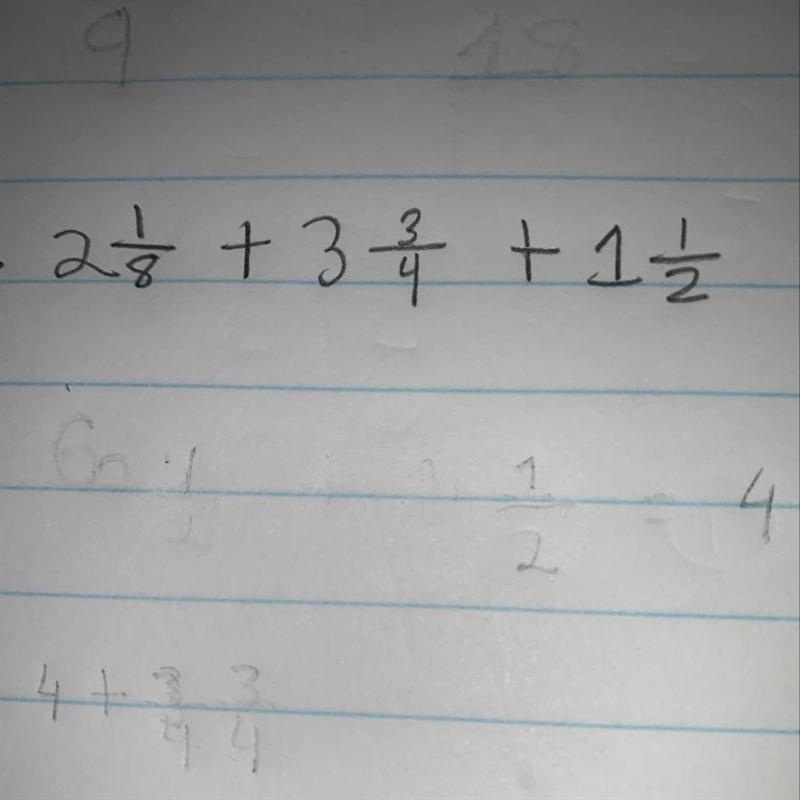 9 18
2 1/8 + 3 3/4 + 1 1/2
1/2 = 4
4 + 3/4 3/4